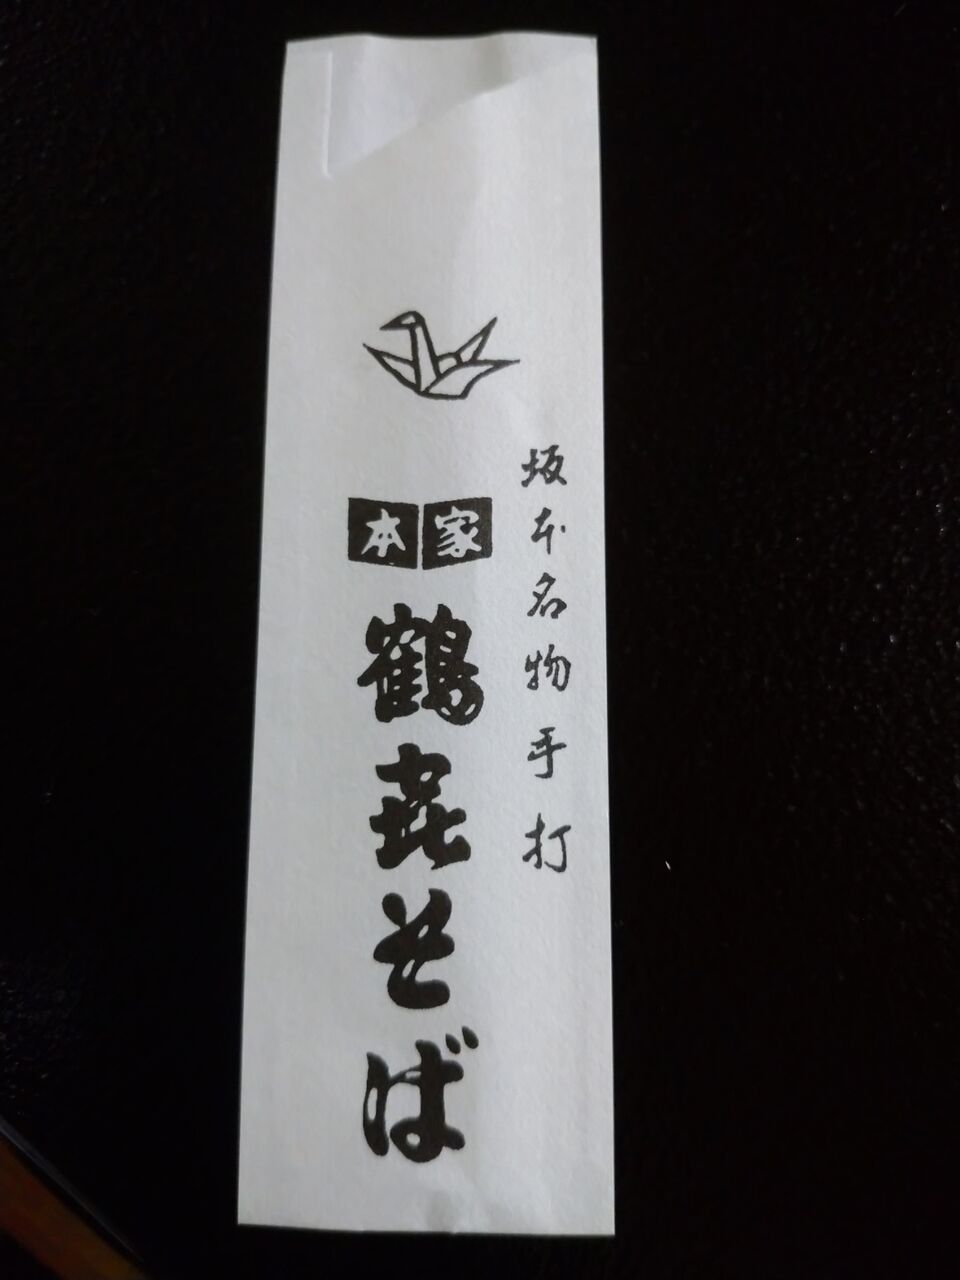 坂本名物手打
本家
鶴㐂そば